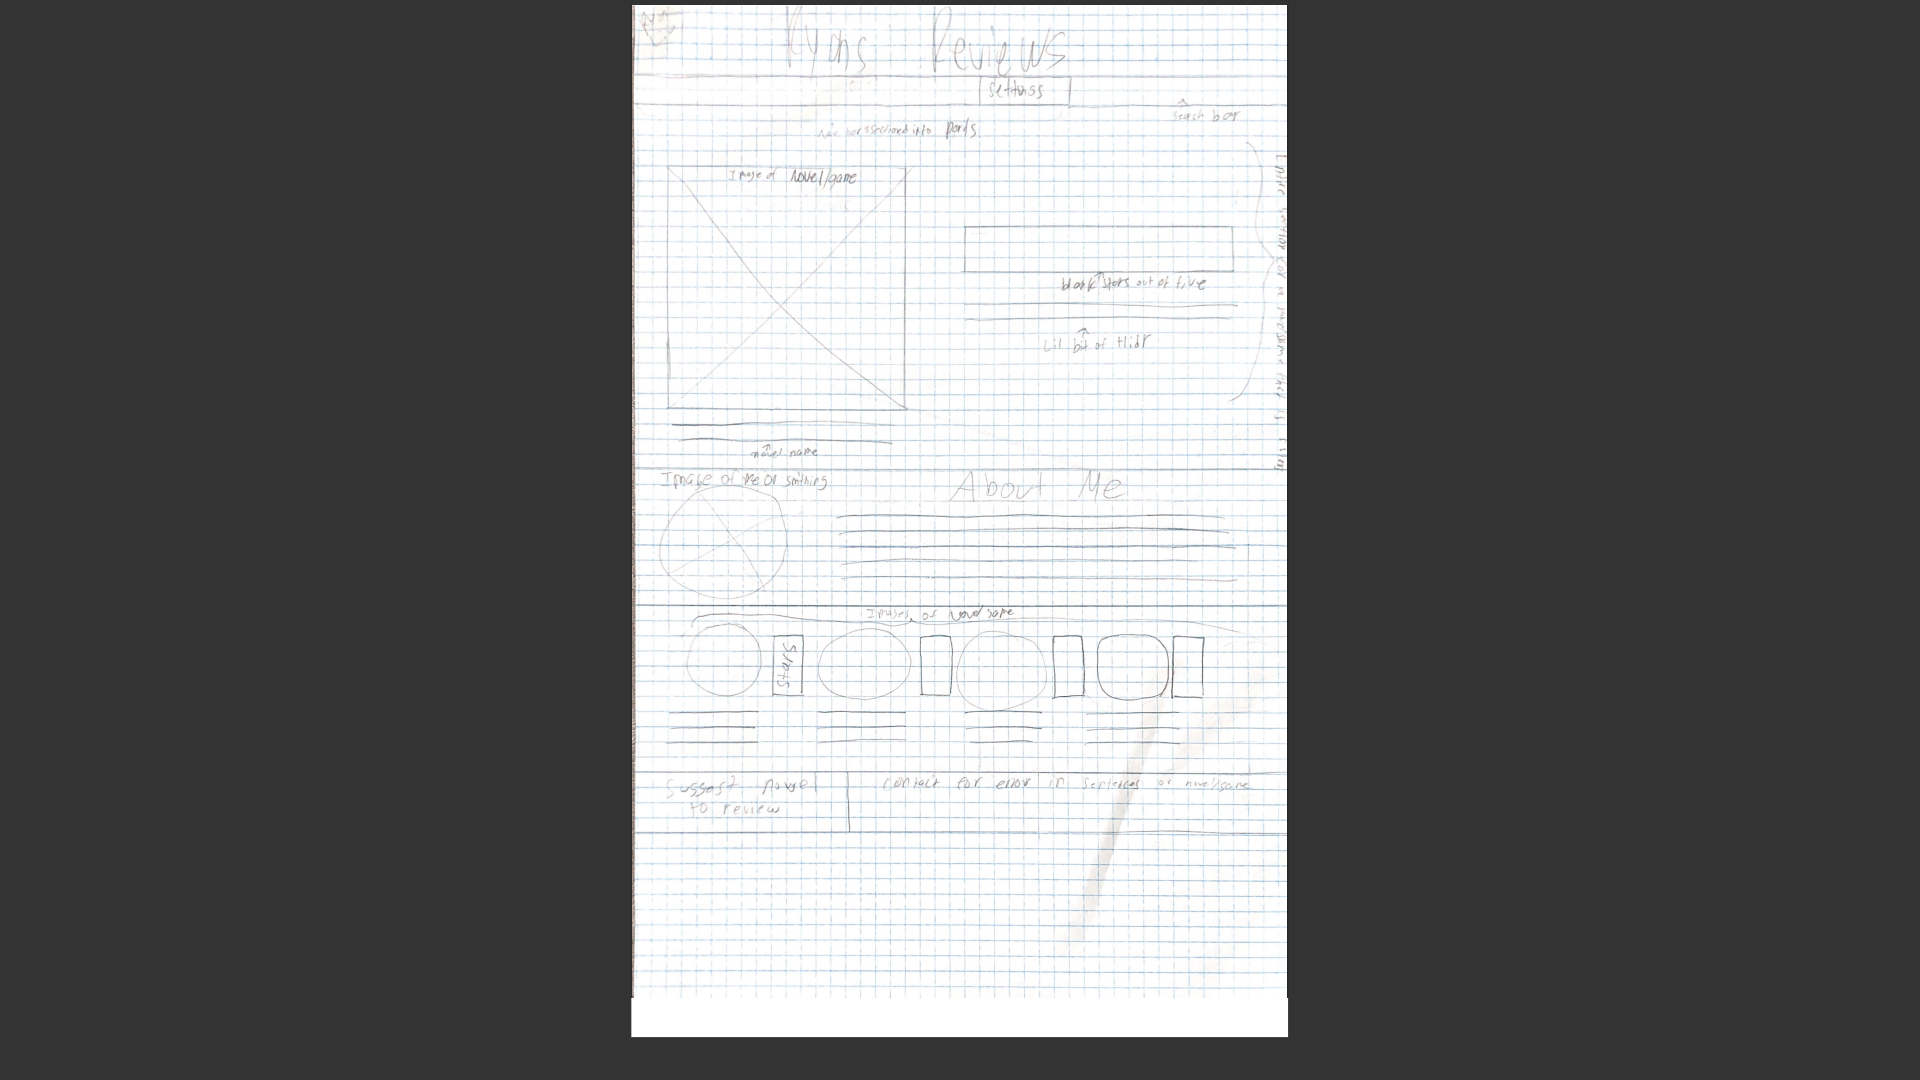 Ryans Reviews
Settings
Search bar
Nav bar sectioned into parts
Image of Novel/game
blank stars out of five
Lil bit of tldr
novel name
Image of me or smthing
About Me
Images of Novel game
Stars
Suggest novel
to review
Contact for error in sentences or novel/game